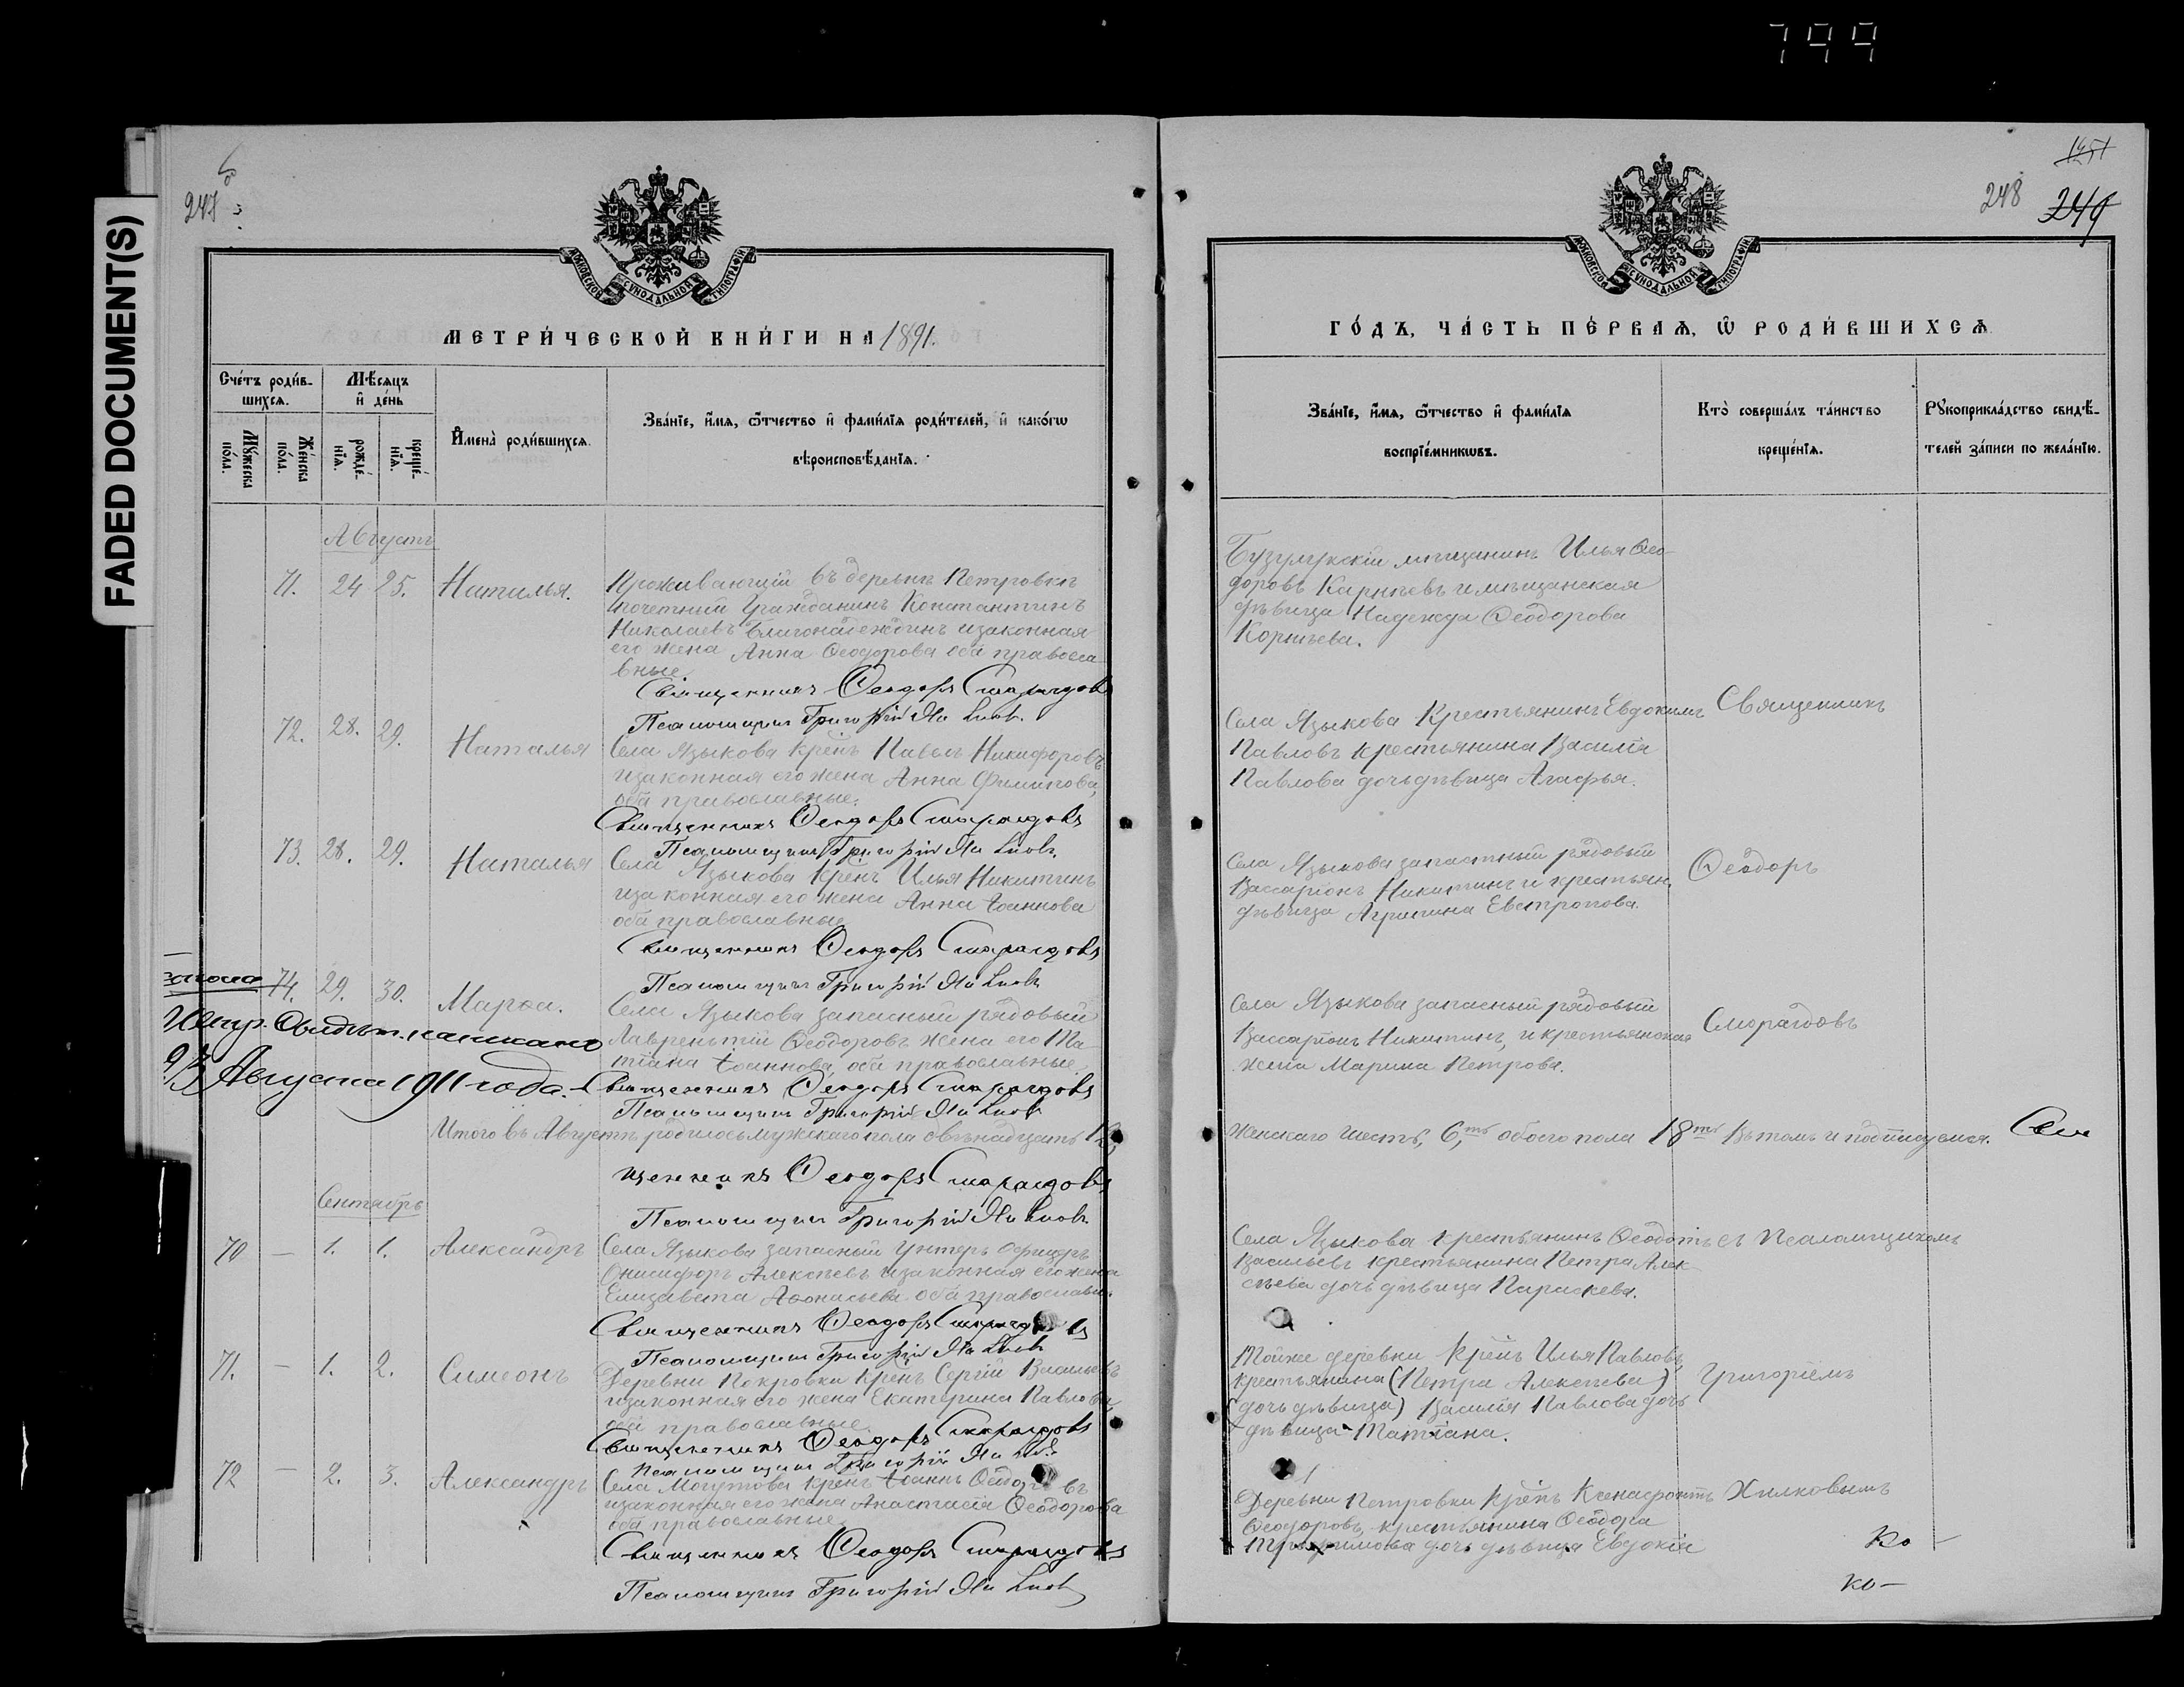 799
FADED DOCUMENT(S)
247
МОСКОВСКОЙ СѴНОДАЛЬНОЙ ТИПОГРАФІИ
МЕТРИ́ЧЕСКОЙ КНИ́ГИ НА 1891.
Сче́тъ роди́в-
шихсѧ.
Мѣ́сѧцъ
и҆ де́нь
Мꙋ́жеска
по́ла.
Же́нска
по́ла.
рожде́-
нїѧ.
креще́-
нїѧ.
И҆мена̀ роди́вшихсѧ.
Зва́нїе, и҆́мѧ, ѻ҆́тчество и҆ фами́лїѧ роди́телей, и҆ како́гѡ
вѣроисповѣ́данїѧ.
Августъ
71. 24 25. Наталья.
Проживающій въ деревнѣ Петровкѣ
почетный Гражданинъ Константинъ
Николаевъ Благонадеждинъ изаконная
его жена Анна Ѳеодорова оба правосла
вные.
Священникъ Ѳеодоръ Смарагдовъ
Псаломщикъ Григорій Хилковъ.
72. 28. 29. Наталья
Села Языкова крѣнъ Павелъ Никифоровъ
изаконная его жена Анна Филипова,
оба православные.
Священникъ Ѳеодоръ Смарагдовъ
Псаломщикъ Григорій Хилковъ.
73. 28. 29. Наталья
Села Языкова крѣнъ Илья Никитинъ
изаконная его жена Анна Іоаннова
оба православные
Священникъ Ѳеодоръ Смарагдовъ
Псаломщикъ Григорій Хилковъ
74. 29. 30. Марѳа.
Села Языкова запасный рядовый
Лаврентій Ѳеодоровъ жена его Та
тіана Іоаннова, оба православные
Священникъ Ѳеодоръ Смарагдовъ
Псаломщикъ Григорій Хилковъ
Августа 1911 года.
Итого въ Августѣ родилось мужскаго пола двѣнадцать 12,
щенникъ Ѳеодоръ Смарагдовъ
Псаломщикъ Григорій Хилковъ.
Сентябрь
70 — 1. 1. Александръ
Села Языкова запасный Унтеръ Офицеръ
Онисифоръ Алексѣевъ изаконная его жена
Елизавета Аѳонасьева оба православн.
Священникъ Ѳеодоръ Смарагдовъ
Псаломщикъ Григорій Хилковъ
71. — 1. 2. Симеонъ
Деревни Покровки Крѣнъ Сергій Васильевъ
изаконная его жена Екатерина Павлова,
оба православные
Священникъ Ѳеодоръ Смарагдовъ
Псаломщикъ Григорій Хилковъ
72 — 2. 3. Александръ
Села Могутова крѣнъ Іоаннъ Ѳеодоровъ
изаконная его жена Анастасія Ѳеодорова
оба православные
Священникъ Ѳеодоръ Смарагдовъ
Псаломщикъ Григорій Хилковъ
1251
248 249
МОСКОВСКОЙ СѴНОДАЛЬНОЙ ТИПОГРАФІИ
ГО́ДЪ, ЧА́СТЬ ПЕ́РВАѦ, Ѽ РОДИ́ВШИХСѦ
Зва́нїе, и҆́мѧ, ѻ҆́тчество и҆ фами́лїѧ
воспрїе́мникѡвъ.
Кто̀ соверша́лъ та́инство
креще́нїѧ.
Рꙋкоприкла́дство свидѣ́-
телей за́писи по жела́нїю.
Бузулукскій мѣщанинъ Илья Ѳео-
доровъ Карнѣевъ и мѣщанская
дѣвица Надежда Ѳеодорова
Корнѣева.
Села Языкова Крестьянинъ Евдокимъ
Павловъ крестьянина Василія
Павлова дочь дѣвица Агафья.
Священникъ
Села Языкова запастный рядовый
Вассаріонъ Никитинъ и крестьян.
дѣвица Агрипина Евстропова.
Ѳеодоръ
Села Языкова запасный рядовый
Вассаріонъ Никитинъ, и крестьянская
жена Марина Петрова.
Смарагдовъ
женскаго шесть, 6,ть обоего пола 18ть Вътомъ и подписуемся. Свя
Села Языкова крестьянинъ Ѳеодотъ
Васильевъ крестьянина Петра Алек
сѣева дочь дѣвица Параскева.
съ Псаломщикомъ
Тойже деревни Крѣнъ Илья Павловъ,
крестьянина (Петра Алексѣева)
(дочь дѣвица) Василія Павлова дочь
дѣвица Татіана.
Григоріемъ
Деревни Петровки Крѣнъ Ксенофонтъ
Ѳеодоровъ, крестьянина Ѳеодора
Трофимова дочь дѣвица Евдокія
Хилковымъ
Ко —
ко —